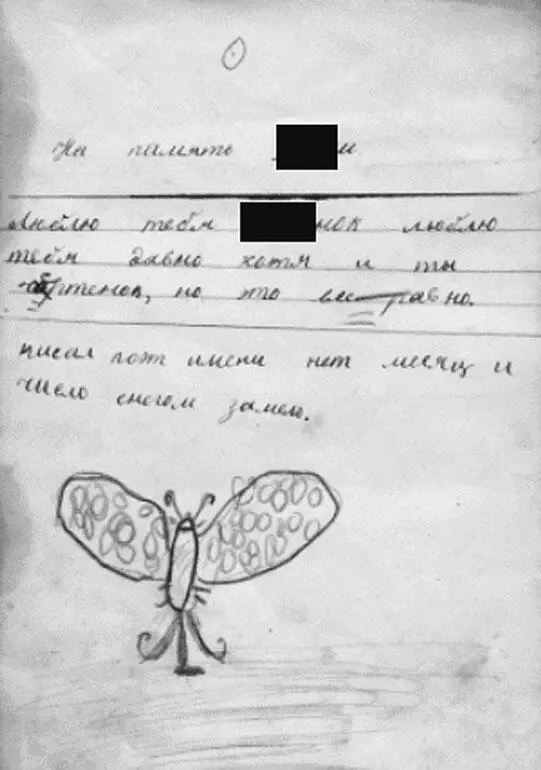 На память и
Люблю тебя нок люблю
тебя давно хотя и ты
но это все равно.
писал поэт имени нет месяц и
число снегом замело.